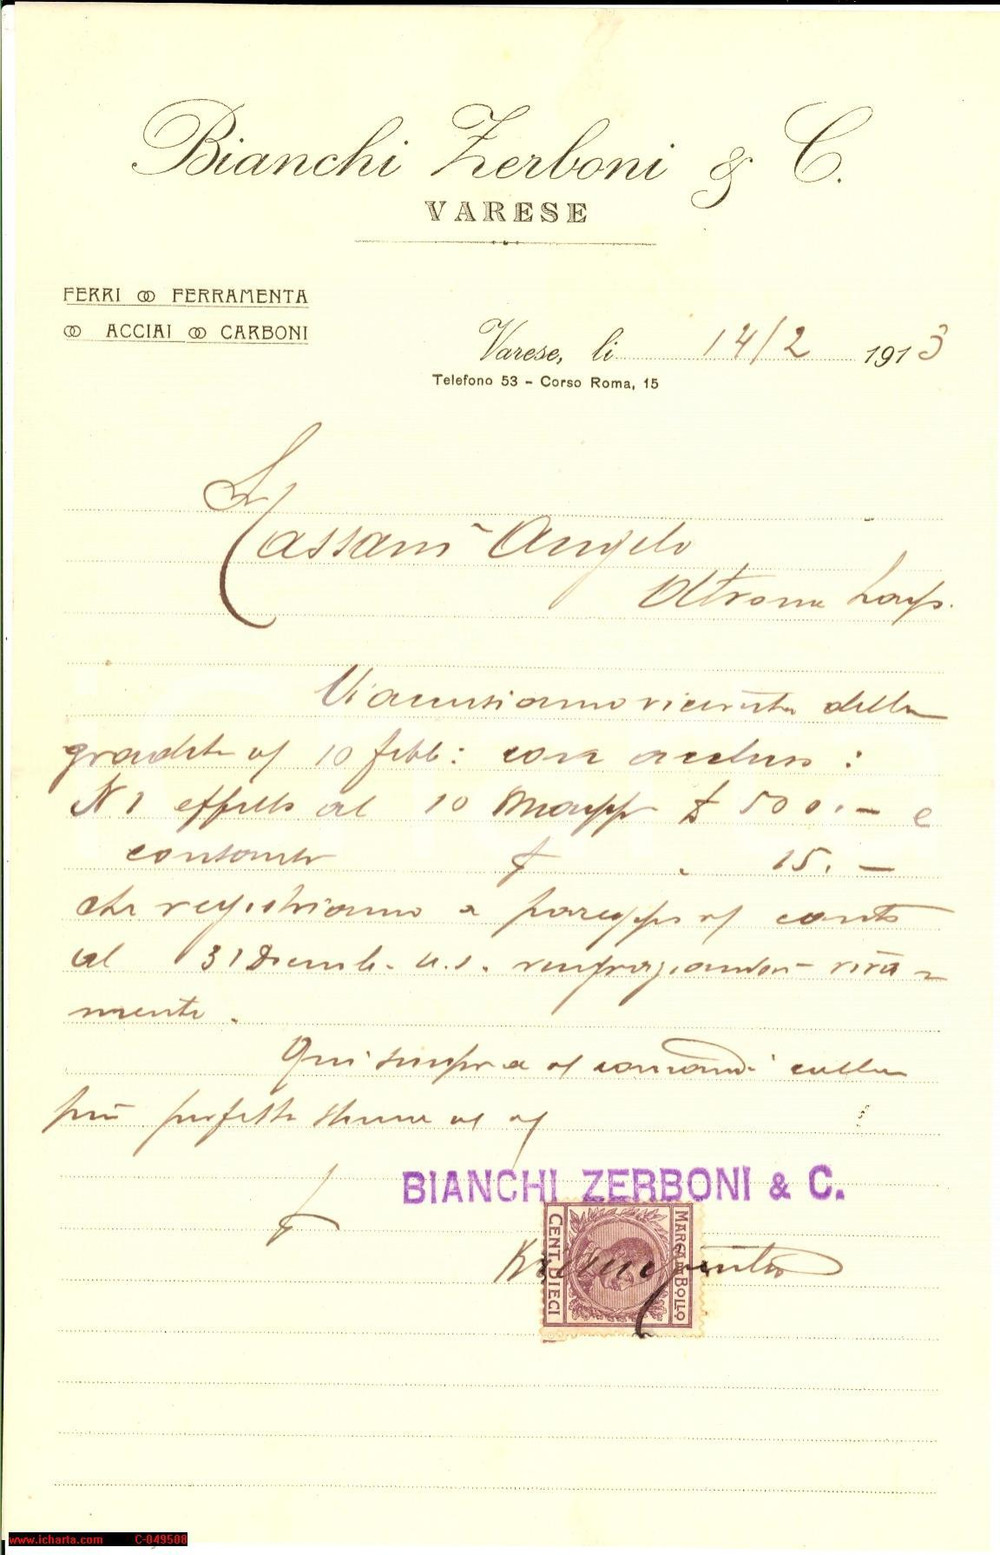 Bianchi Zerboni & C.
VARESE
FERRI FERRAMENTA
ACCIAI CARBONI
Varese, li 14/2 1913
Telefono 53 - Corso Roma, 15
Angelo
Oltrona
Vi accusiamo ricevuta della
gradita 10 febb: con accluso:
N 1 effetto al 10 Magg £ 500.- e
contanti £ 15.-
che registriamo a pareggio conto
al 31 Dicemb. u.s. ringraziandovi viva-
mente.
Qui sempre comandi colla
più perfetta stima
BIANCHI ZERBONI & C.
MARCA DA BOLLO
CENT. DIECI
www.icharta.com C-049508